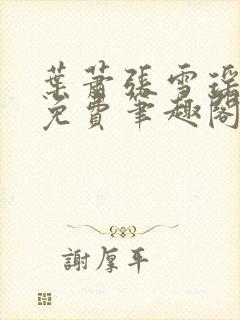 葉蕭張雪瑤
免費筆趣閣
謝厚平